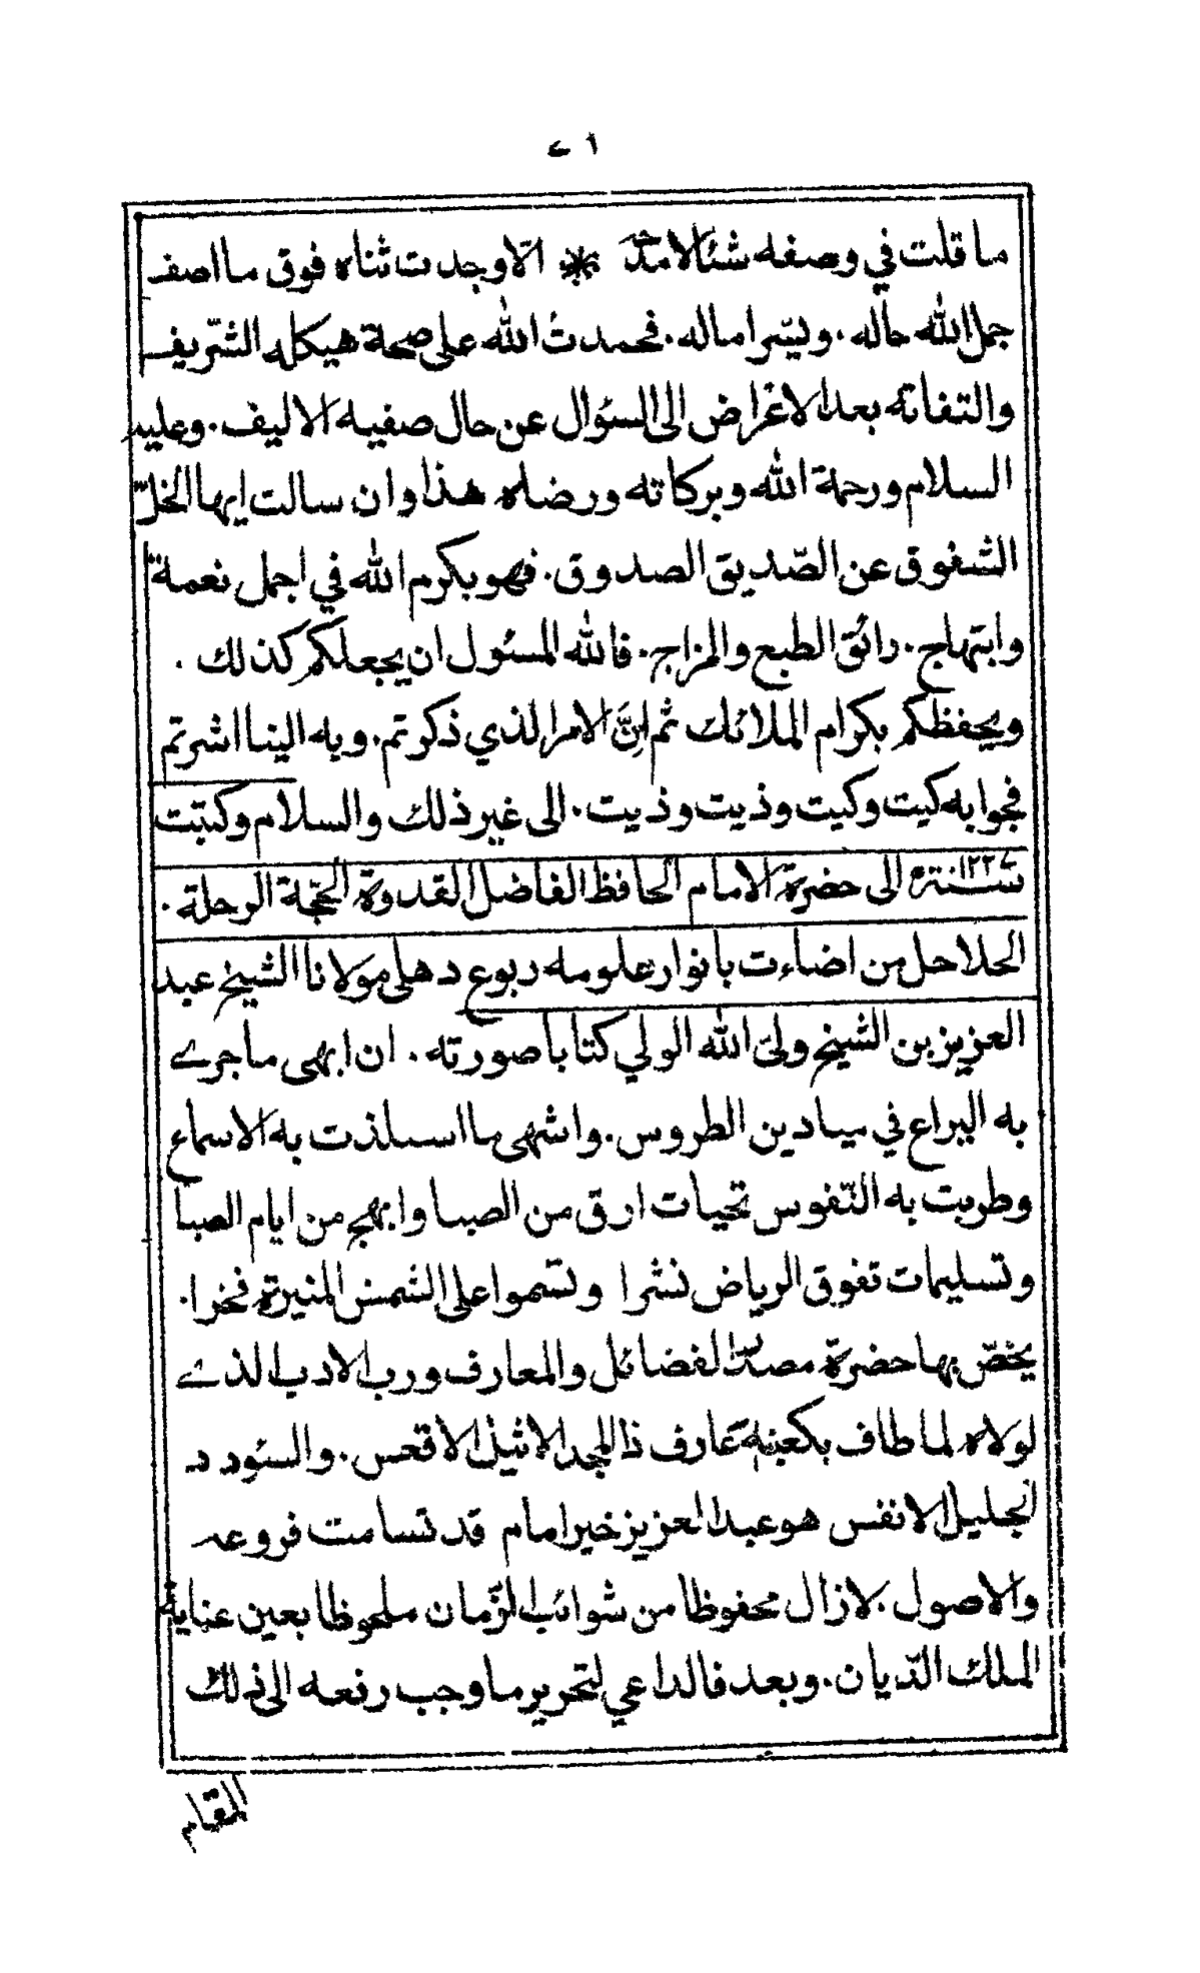 ما قلت في وصفه شئا لامدّحه * الّا وجدت ثناه فوق ما اصف
جمل الله حاله. ويسّر اماله. فحمدت الله على صحة هيكله الشّريف
والتفاته بعد الاغراض الى السئوال عن حال صفيه الاليف. وعليه
السلام ورحمة الله وبركاته ورضاه هذا وان سالت ايها الخلّ
الشفوق عن الصّديق الصدوق. فهو بكرم الله في اجمل نعمة
وابتهاج. رائق الطبع والمزاج. فالله المسئول ان يجعلكم كذلك.
ويحفظكم بكرام الملائك ثم انَّ الامر الذي ذكرتم. وبه الينا اشرتم
فجوابه كيت وكيت وذيت وذيت. الى غير ذلك والسلام وكتبت
سنة ١٢٢٧ الى حضرة الامام الحافظ الفاضل القدوة الحجّة الرحلة.
الحلاحل من اضاءت بانوار علومه ربوع دهلي مولانا الشيخ عبد
العزيز بن الشيخ ولىّ الله الولي كتابا صورته. ان ابهى ما جرے
به اليراع في ميادين الطروس. واشهى ما استلذت به الاسماع
وطربت به النّفوس تحيات ارق من الصبا وابهج من ايام الصبا
وتسليمات تفوق الرياض نشرا وتسموا على الشمس المنيرة فخرا.
يخصّ بها حضرة مصدر الفضائل والمعارف ورب الادب الذے
لولاه لما طاف بكعبته عارف ذا المجد الاثيل الاقعس. والسئودد
الجليل الانفس هو عبد العزيز خير امام قد تسامت فروعه
والاصول. لازال محفوظا من شوائب الزّمان ملحوظا بعين عناية
الملك الدّيان. وبعد فالداعي لتحرير ما وجب رفعه الى ذلك
المقام